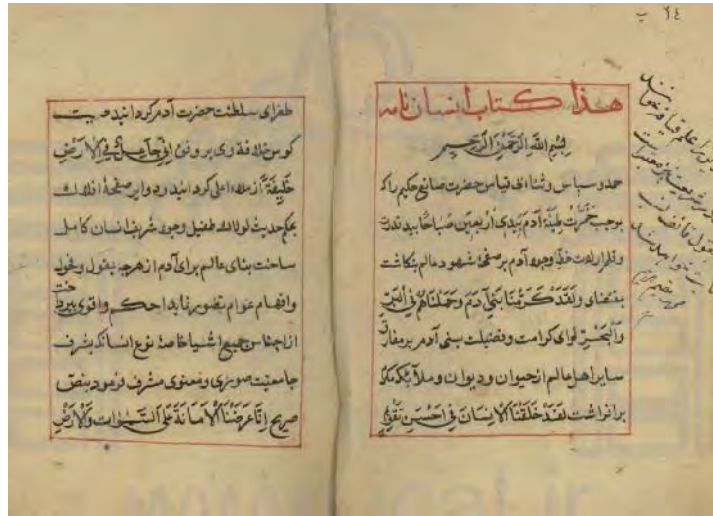 ٦٤ پ
هذا كتاب انسان نامه
بسم الله الرحمن الرحيم
حمد و سپاس و ثناء بی قیاس حضرت صانع حکیم را که
بموجب خَمَّرْتُ طِينَةَ آدَمَ بِيَدَيَّ اَرْبَعِينَ صَبَاحًا بید قدرت
و قلم ارادت خط وجود آدم بر صفحهٔ شهود عالم بنگاشت
بمقتضای وَلَقَدْ كَرَّمْنَا بَنِي آدَمَ وَحَمَلْنَاهُمْ فِي الْبَرِّ
وَالْبَحْرِ لوای کرامت و فضیلت بنی آدم بر مفارق
سایر اهل عالم از حیوان و دیوان و ملائکه
برافراشت لَقَدْ خَلَقْنَا الْاِنْسَانَ فِي اَحْسَنِ تَقْوِيمٍ
طغرای سلطنت حضرت آدم کردانید و صیت
کوس خلافة وی بر وفق اِنِّي جَاعِلٌ فِي الْاَرْضِ
خَلِيفَةً از ملاء اعلی کردانید و دوایر صفحهٔ افلاک
بحکم حدیث لولاک طفیل وجود شریف انسان کامل
ساخت بنای عالم برای آدم از هرچه بقول و فحول
و افهام عوام بتصور نیاید احکم و اقوی
از اجناس جمیع اشیا خاصهٔ نوع انسانکه بشرف
جامعیت صوری و معنوی مشرف فرمود بنص
صریح اِنَّا عَرَضْنَا الْاَمَانَةَ عَلَى السَّمٰوَاتِ وَالْاَرْضِ